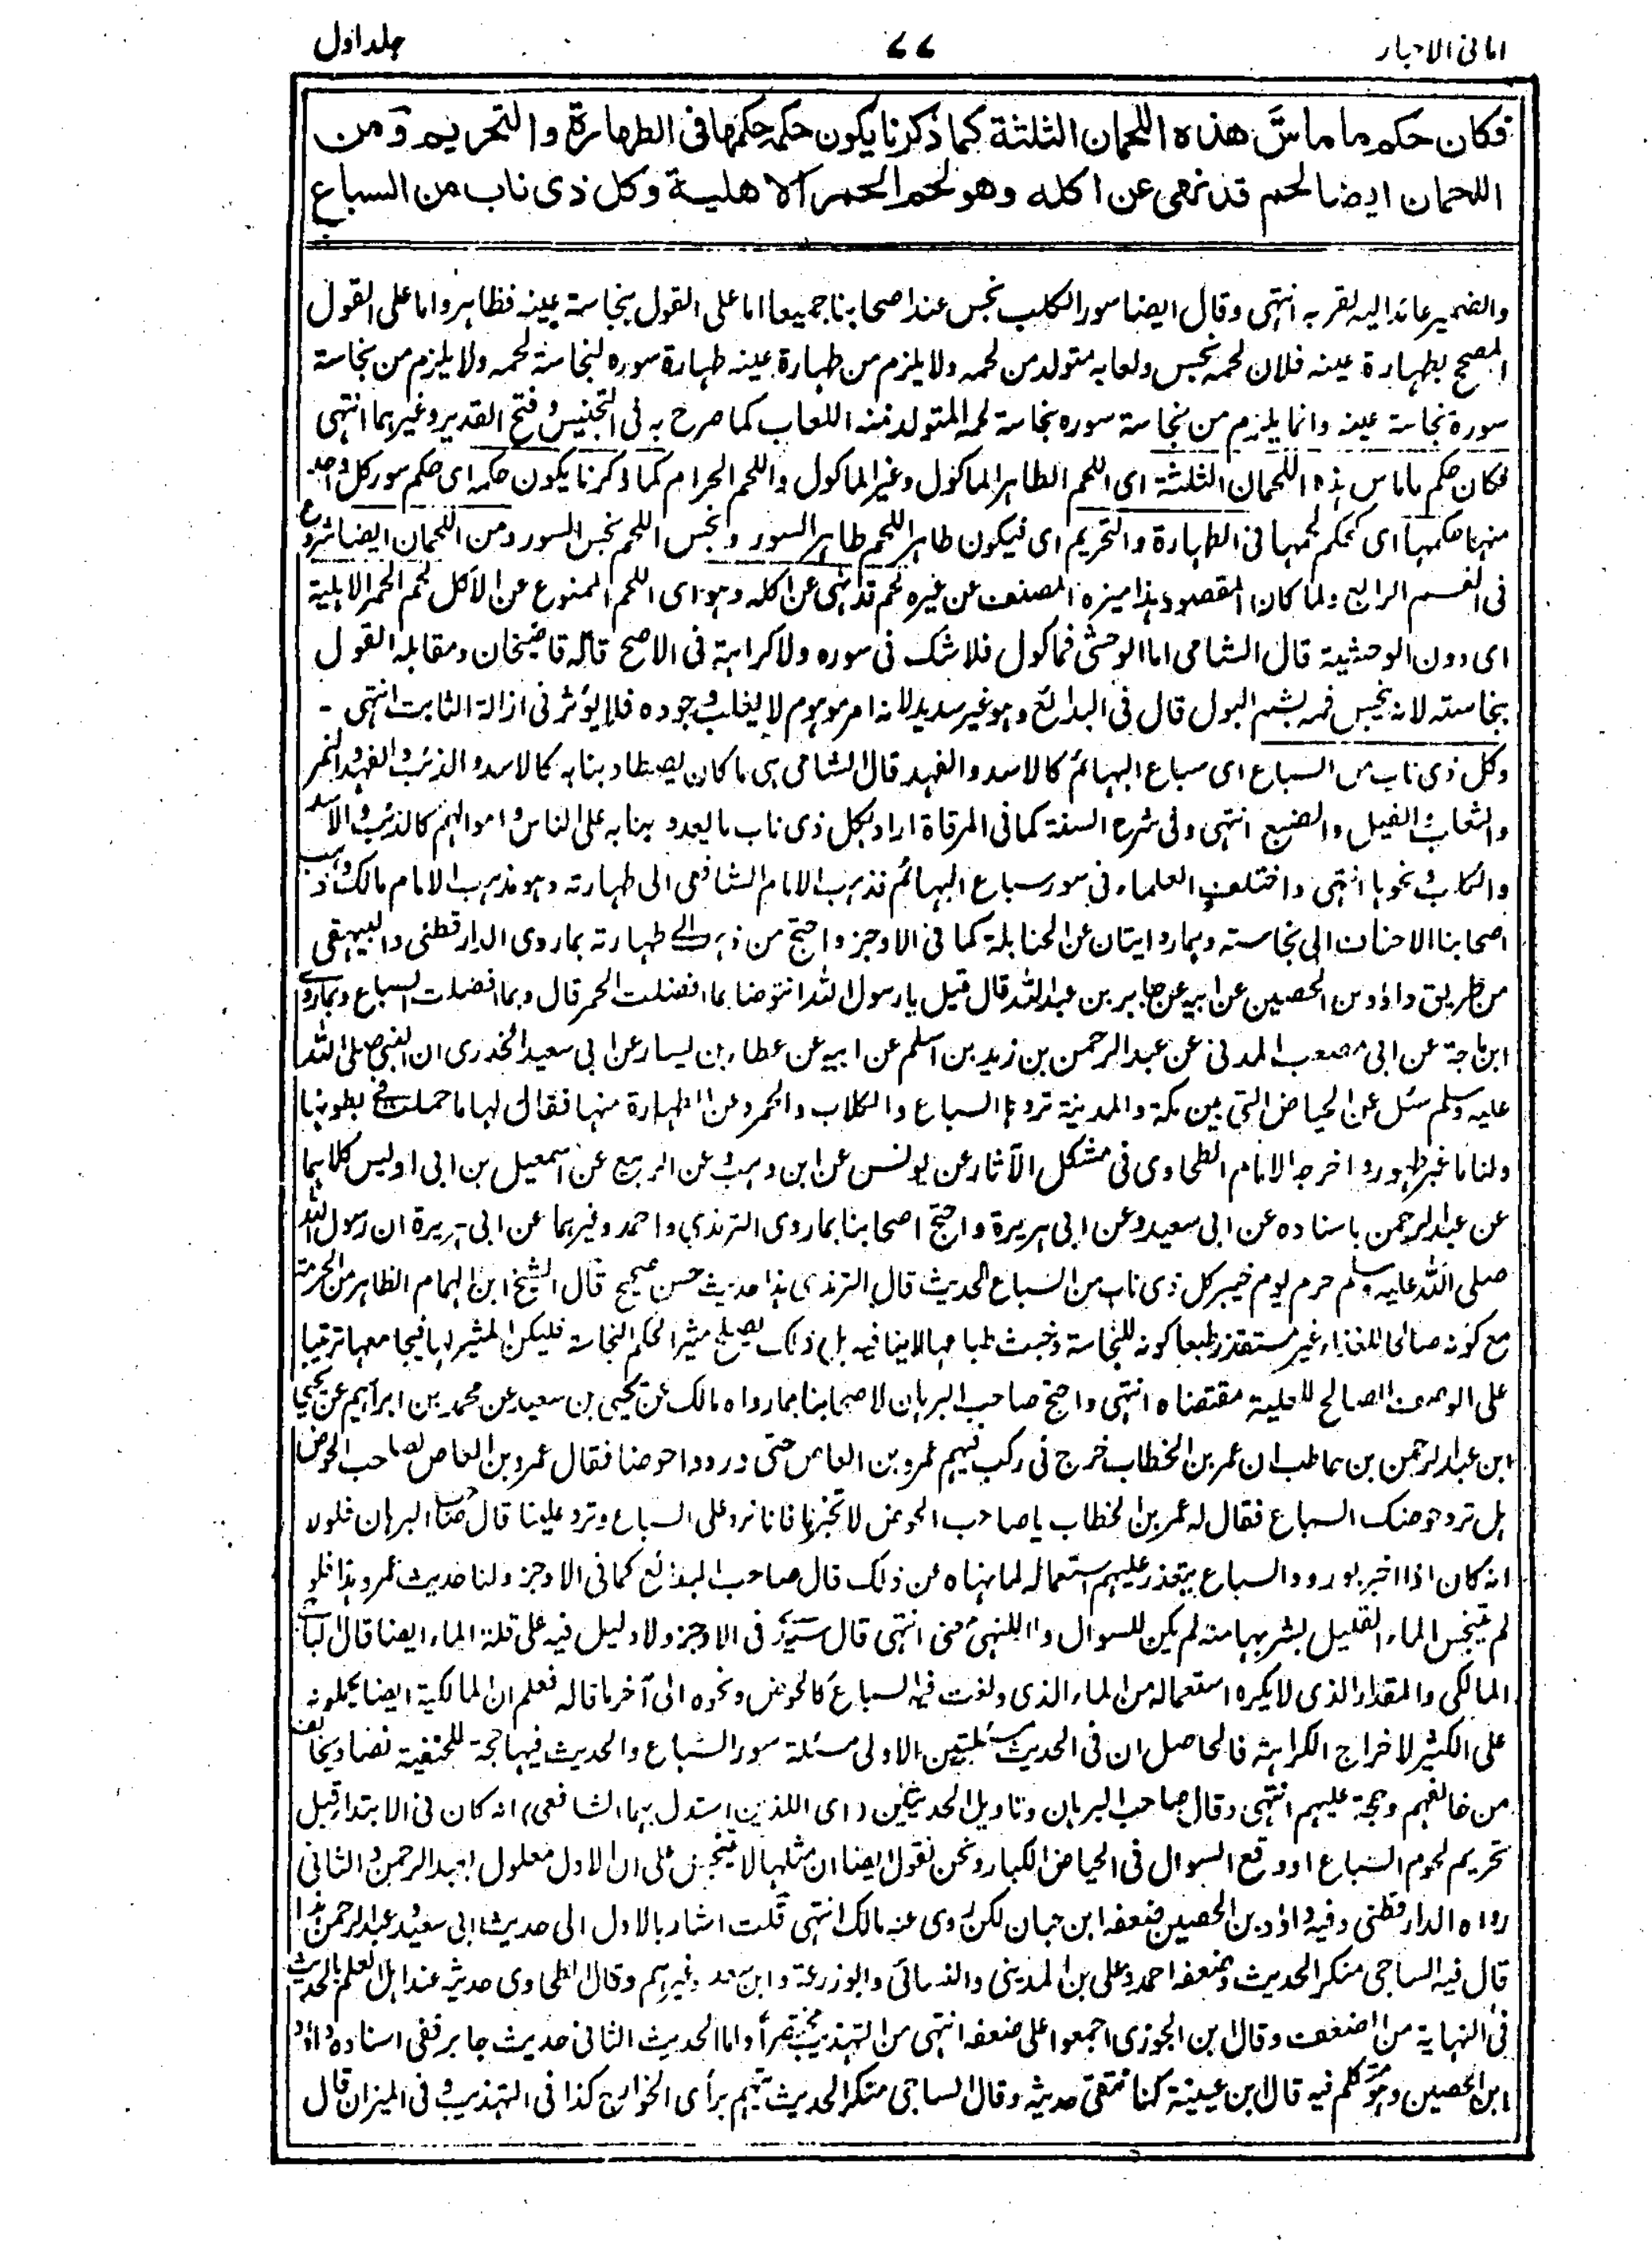 امانی الاحبار ۷۷ جلد اول
فكان حكم ما ماسّ هذه اللحمان الثلثة كما ذكرنا يكون حكمه حكمها فى الطهارة والتحريم ومن
اللحمان ايضا لحم قد نهى عن اكله وهو لحم الحمر الاهلية وكل ذى ناب من السباع
والضمير عائد اليه لقربه انتهى وقال ايضا سور الكلب نجس عند اصحابنا جميعا اما على القول بنجاسة عينه فظاهر واما على القول
المصحح بطهارة عينه فلان لحمه نجس ولعابه متولد من لحمه ولا يلزم من طهارة عينه طهارة سوره لنجاسة لحمه ولا يلزم من نجاسة
سورة نجاسة عينه وانما يلزم من نجاسة سوره نجاسة لحمه المتولد منه اللعاب كما صرح به فى التجنيس و فتح القدير وغيرهما انتهى
فكان حكم ماماس هذه اللحمان الثلثة اى اللحم الطاهر الماكول وغير الماكول واللحم الحرام كما ذكرنا يكون حكمه اى حكم سور كل واحد
منها حكمها اى كحكم لحمها فى الطهارة والتحريم اى فيكون طاهر اللحم طاهر السور و نجس اللحم نجس السور ومن اللحمان ايضا شروع
فى القسم الرابع ولما كان المقصود هذا ميزه المصنف عن غيره لحم قد نهى عن اكله وهو اى اللحم الممنوع عن الاكل لحم الحمر الاهلية
اى دون الوحشية قال الشامى اما الوحشى فماكول فلا شك فى سوره ولا كراهة فى الاصح قاله قاضيخان ومقابله القول
بنجاسته لانه نجس فمه بشم البول قال فى البدائع وهو غير سديد لانه امر موهوم لا يغلب وجوده فلا يؤثر فى ازالة الثابت انتهى -
وكل ذى ناب من السباع اى سباع البهائم كالاسد والفهد قال الشامى هى ما كان يصطاد بنابه كالاسد والذئب والفهد والنمر
والثعلب والفيل والضبع انتهى وفى شرح السنة كما فى المرقاة اراد بكل ذى ناب ما يعدو بنابه على الناس واموالهم كالذئب والاسد
والكلب ونحوها انتهى واختلف العلماء فى سور سباع البهائم فذهب الامام الشافعى الى طهارته وهو مذهب الامام مالك وذهب
اصحابنا الاحناف الى نجاسته وهما روايتان عن الحنابلة كما فى الاوجز واحتج من ذهب الى طهارته بما روى الدارقطنى والبيهقى
من طريق داؤد بن الحصين عن ابيه عن جابر بن عبدالله قال قيل يا رسول الله انتوضا بما افضلت الحمر قال وبما افضلت السباع وبما روى
ابن ماجة عن ابى مصعب المدنى عن عبدالرحمن بن زيد بن اسلم عن ابيه عن عطاء بن يسار عن ابى سعيد الخدرى ان النبى صلى الله
عليه وسلم سئل عن الحياض التى بين مكة والمدينة تردها السباع والكلاب والحمر وعن الطهارة منها فقال لها ما حملت فى بطونها
ولنا ما غبر طهور واخرجه الامام الطحاوى فى مشكل الآثار عن يونس عن ابن وهب وعن الربيع عن اسمعيل بن ابى اويس كلاهما
عن عبدالرحمن باسناده عن ابى سعيد وعن ابى هريرة واحتج اصحابنا بما روى الترمذى واحمد وغيرهما عن ابى هريرة ان رسول الله
صلى الله عليه وسلم حرم يوم خيبر كل ذى ناب من السباع الحديث قال الترمذى هذا حديث حسن صحيح قال الشيخ ابن الهمام الظاهر من الحرمة
مع كونه صالحا للغذاء غير مستقذر طبعا كونه للنجاسة وخبث طباعها لا ينافيه بل ذلك يصلح مثيرا لحكم النجاسة فليكن المثير لها فيجامعها ترتيبا
على الوصف الصالح للعلية مقتضاه انتهى واحتج صاحب البرهان لاصحابنا بما رواه مالك عن يحيى بن سعيد عن محمد بن ابراهيم عن يحيى
ابن عبدالرحمن بن حاطب ان عمر بن الخطاب خرج فى ركب فيهم عمرو بن العاص حتى وردوا حوضا فقال عمرو بن العاص لصاحب الحوض
هل ترد حوضك السباع فقال له عمر بن الخطاب يا صاحب الحوض لا تخبرنا فانا نرد على السباع وترد علينا قال صاحب البرهان فلولا
انه كان اذا اخبر بورود السباع يتعذر عليهم استعماله لما نهاه عن ذلك قال صاحب البدائع كما فى الاوجز ولنا حديث عمر وهذا فلو
لم يتنجس الماء القليل بشربها منه لم يكن للسوال والنهى معنى انتهى قال فى الاوجز ولا دليل فيه على قلة الماء ايضا قال
المالكى والمقدار الذى لا يكره استعماله من الماء الذى ولغت فيه السباع كالحوض ونحوه الى آخر ما قاله فعلم ان المالكية ايضا يحملونه
على الكثير لاخراج الكراهة فالحاصل ان فى الحديث مسئلتين الاولى مسئلة سور السباع والحديث فيها حجة للحنفية
من خالفهم وحجة عليهم انتهى وقال صاحب البرهان وتاويل الحديثين (اى اللذين استدل بهما الشافعى) انه كان فى الابتداء قبل
تحريم لحوم السباع او وقع السوال فى الحياض الكبار ونحن نقول ايضا ان مثلها لا يتنجس على ان الاول معلول بعبدالرحمن والثانى
رواه الدارقطنى وفيه داؤد بن الحصين ضعفه ابن حبان لكن روى عنه مالك انتهى قلت اشار بالاول الى حديث ابى سعيد وعبدالرحمن هذا
قال فيه الساجى منكر الحديث وضعفه احمد وعلى بن المدينى والنسائى وابوزرعة وابن سعد وغيرهم وقال الطحاوى حديثه عند اهل العلم بالحديث
فى النهاية من الضعف وقال ابن الجوزى اجمعوا على ضعفه انتهى من التهذيب مختصرا واما الحديث الثانى حديث جابر ففى اسناده داؤد
ابن الحصين وهو متكلم فيه قال ابن عيينة كنا نتقى حديثه وقال الساجى منكر الحديث يتهم برأى الخوارج كذا فى التهذيب وفى الميزان قال